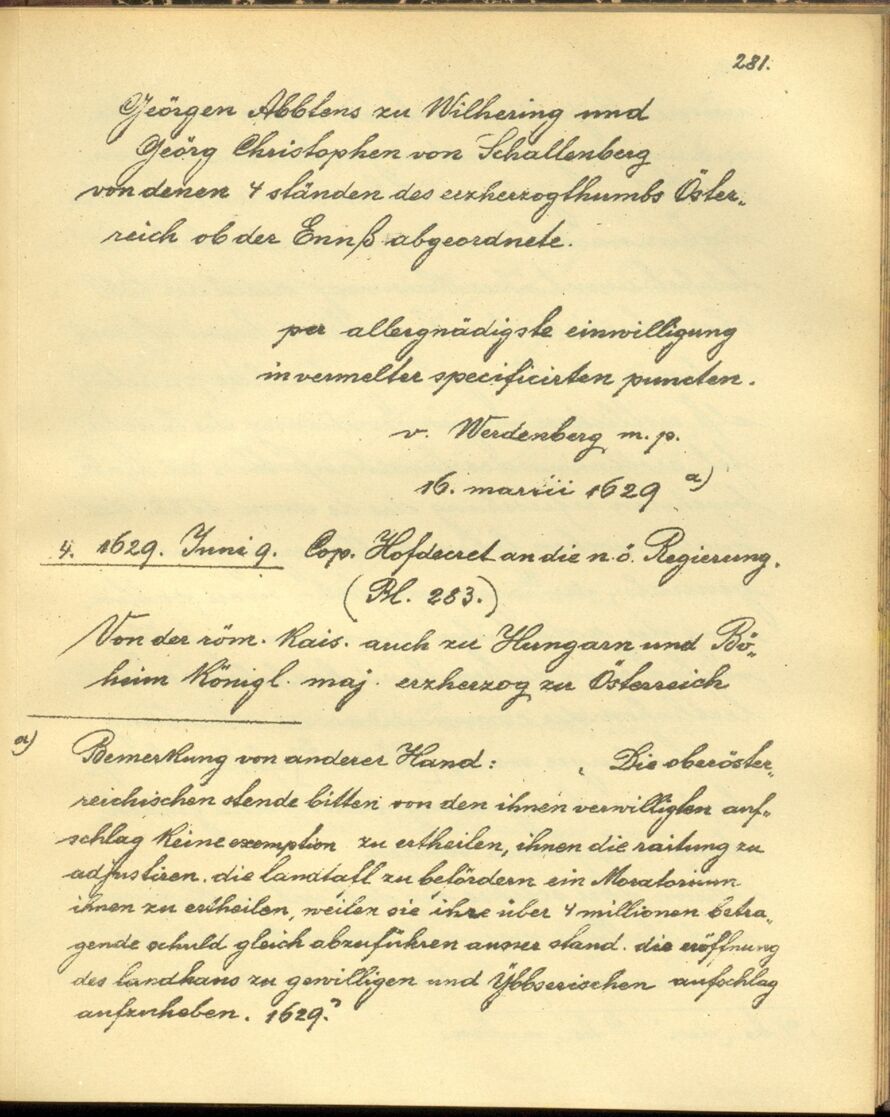 281.
Geörgen Abbtens zu Wilhering und
Geörg Christophen von Schallenberg
von denen 4 ständen des erzherzogthumbs Öster„
reich ob der Ennß abgeordnete.
per allergnädigste einwilligung
in vermelter specificirten puncten.
v. Werdenberg m. p.
16. marzii 1629 a)
4. 1629. Juni 9. Cop. Hofdecret an die n. ö. Regierung.
(Bl. 283.)
Von der röm. Kais. auch zu Hungarn und Bö„
heim Königl. maj. erzherzog zu Österreich
a) Bemerkung von anderer Hand: „ Die oberöster„
reichischen stende bitten von den ihnen verwilligten auf„
schlag keine exemption zu ertheilen, ihnen die raitung zu
adjustiren. die landtafl zu befördern ein Moratorium
ihnen zu ertheilen, weilen sie ihre über 4 millionen betra„
gende schuld gleich abzuführen ausser stand. die eröffnung
des landhaus zu gewilligen und Ybbserischen aufschlag
aufzuheben. 1629."